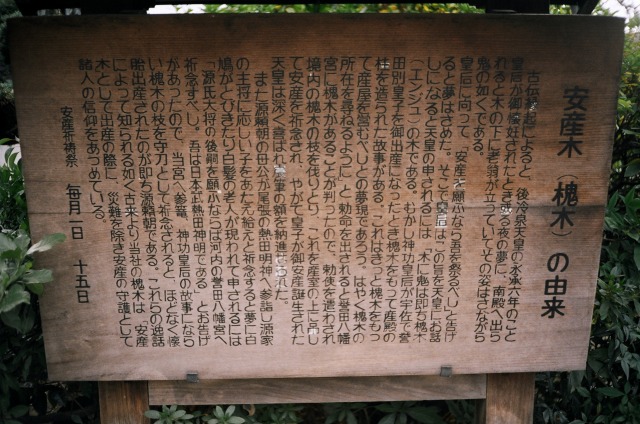 安産木（槐木）の由来
古伝縁起によると、後冷泉天皇の永承六年のこと
皇后が御懐妊されたとき或る夜の夢に、南殿へ出ら
れると木の下に老翁が立っていてその姿はさながら
鬼の如くである。
皇后に向って、安産を願ふなら吾を祭るべしと告げ
ると夢はさめた。そこで皇后はこの旨を天皇にお話
しになると天皇の申されるには、木に鬼は即ち槐木
（エンジュ）の木である。むかし神功皇后が宇佐で誉
田別皇子を御出産になったとき槐木をもって産殿の
柱を造られた故事がある。これはきっと槐木をもっ
て産屋を営むべしとの夢現であろう。はやく槐木の
所在を尋ねるように、と勅命を出されると誉田八幡
宮に槐木があることが判ったので、勅使を遣わされ
境内の槐木の枝を伐りとり、これを産室の上に吊し
て安産を祈念され、やがて皇子が御安産誕生された
天皇は深く喜ばれ宸筆の額を納進せられた。
また源頼朝の母公が尾張の熱田明神へ参詣し源家
の主将に応しい子をあたえ給えと祈念すると夢に白
鳩がとびきたり白髪の老人が現われて申されるには
「源氏大将の後嗣を願ふならば河内の誉田八幡宮へ
祈念すべし。吾は日本武熱田神明である」とお告げ
があったので、当宮へ参篭、神功皇后の故事になら
い槐木の枝を守刀として祈念されると、ほどなく懐
胎出産されたのが即ち源頼朝である。これらの逸話
によって知られる如く古来より当社の槐木は、安産
木として出産の際に、災難を除き安産の守護として
諸人の信仰をあつめている。
安産祈祷祭　毎月一日　十五日